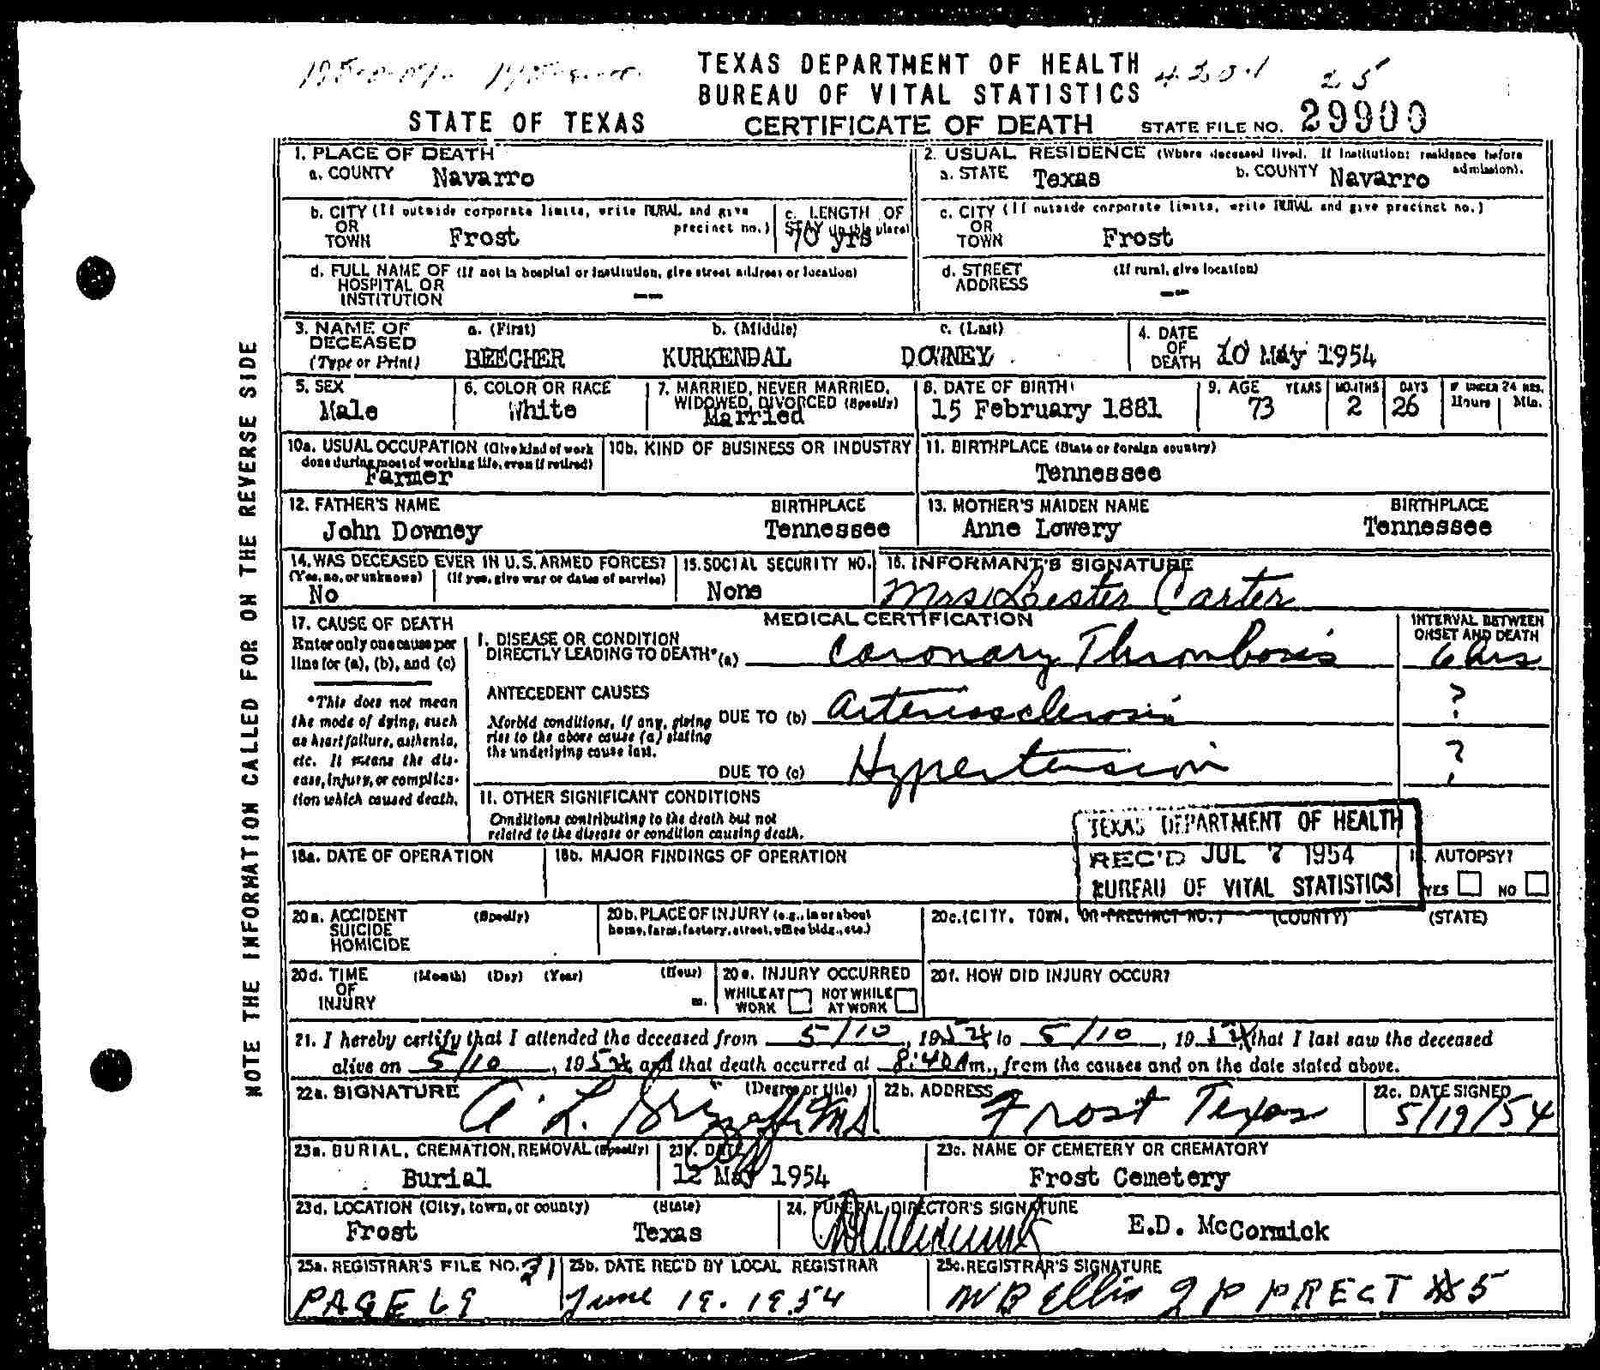 TEXAS DEPARTMENT OF HEALTH 4201 25
BUREAU OF VITAL STATISTICS
STATE OF TEXAS CERTIFICATE OF DEATH STATE FILE NO. 29900
NOTE THE INFORMATION CALLED FOR ON THE REVERSE SIDE
1. PLACE OF DEATH
a. COUNTY Navarro
2. USUAL RESIDENCE (Where deceased lived. If institution: residence before admission).
a. STATE Texas b. COUNTY Navarro
b. CITY (If outside corporate limits, write RURAL and give precinct no.)
OR
TOWN Frost
c. LENGTH OF
STAY (in this place)
70 yrs
c. CITY (If outside corporate limits, write RURAL and give precinct no.)
OR
TOWN Frost
d. FULL NAME OF (If not in hospital or institution, give street address or location)
HOSPITAL OR
INSTITUTION --
d. STREET (If rural, give location)
ADDRESS --
3. NAME OF a. (First) b. (Middle) c. (Last)
DECEASED
(Type or Print) BEECHER KURKENDAL DOWNEY
4. DATE
OF
DEATH 10 May 1954
5. SEX
Male
6. COLOR OR RACE
White
7. MARRIED, NEVER MARRIED,
WIDOWED, DIVORCED (Specify)
Married
8. DATE OF BIRTH
15 February 1881
9. AGE YEARS MONTHS DAYS IF UNDER 24 HRS.
Hours Min.
73 2 26
10a. USUAL OCCUPATION (Give kind of work
done during most of working life, even if retired)
Farmer
10b. KIND OF BUSINESS OR INDUSTRY
11. BIRTHPLACE (State or foreign country)
Tennessee
12. FATHER'S NAME BIRTHPLACE
John Downey Tennessee
13. MOTHER'S MAIDEN NAME BIRTHPLACE
Anne Lowery Tennessee
14. WAS DECEASED EVER IN U.S. ARMED FORCES?
(Yes, no, or unknown) (If yes, give war or dates of service)
No
15. SOCIAL SECURITY NO.
None
16. INFORMANT'S SIGNATURE
Mrs Lester Carter
17. CAUSE OF DEATH
Enter only one cause per
line for (a), (b), and (c)
*This does not mean
the mode of dying, such
as heart failure, asthenia,
etc. It means the dis-
ease, injury, or complica-
tion which caused death.
MEDICAL CERTIFICATION
INTERVAL BETWEEN
ONSET AND DEATH
I. DISEASE OR CONDITION
DIRECTLY LEADING TO DEATH* (a) Coronary Thrombosis 6 hrs
ANTECEDENT CAUSES
Morbid conditions, if any, giving
rise to the above cause (a) stating
the underlying cause last.
DUE TO (b) Arteriosclerosis ?
DUE TO (c) Hypertension ?
II. OTHER SIGNIFICANT CONDITIONS
Conditions contributing to the death but not
related to the disease or condition causing death.
TEXAS DEPARTMENT OF HEALTH
REC'D JUL 7 1954
BUREAU OF VITAL STATISTICS
18a. DATE OF OPERATION
18b. MAJOR FINDINGS OF OPERATION
AUTOPSY?
YES NO
20a. ACCIDENT (Specify)
SUICIDE
HOMICIDE
20b. PLACE OF INJURY (e.g., in or about
home, farm, factory, street, office bldg., etc.)
20c. (CITY, TOWN, OR PRECINCT NO.) (COUNTY) (STATE)
20d. TIME (Month) (Day) (Year) (Hour)
OF
INJURY m.
20e. INJURY OCCURRED
WHILE AT WORK NOT WHILE AT WORK
20f. HOW DID INJURY OCCUR?
21. I hereby certify that I attended the deceased from 5/10, 1954 to 5/10, 1954, that I last saw the deceased
alive on 5/10, 1954 and that death occurred at 8:40 A m., from the causes and on the date stated above.
22a. SIGNATURE (Degree or title)
A. L. MD
22b. ADDRESS
Frost Texas
22c. DATE SIGNED
5/19/54
23a. BURIAL, CREMATION, REMOVAL (Specify)
Burial
23b. DATE
12 May 1954
23c. NAME OF CEMETERY OR CREMATORY
Frost Cemetery
23d. LOCATION (City, town, or county) (State)
Frost Texas
24. FUNERAL DIRECTOR'S SIGNATURE
E.D. McCormick
25a. REGISTRAR'S FILE NO. 31
PAGE 69
25b. DATE REC'D BY LOCAL REGISTRAR
June 19. 1954
25c. REGISTRAR'S SIGNATURE
W B Ellis J P PRECT #5